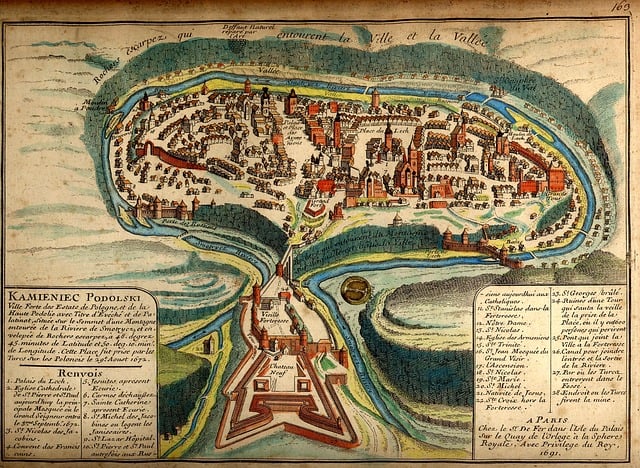 169
Deffaut Naturel
réparé par
l'Art
Rochers Escarpez qui entourent la Ville et la Vallée
Vallée
Moulin
a Poudre
Place du Lech
Vieille
Forteresse
Chateau
Neuf
KAMIENIEC PODOLSKI
Ville Forte des Estats de Pologne, et de la
Haute Podolie avec Titre d'Evêché et de Pa-
latinat, Située sur le Sommet d'une Montagne
entourée de la Riviere de Smotrzyez, et en-
velopée de Rochers escarpez, a 48. degrez
45. minutes de Latitude et 51. et
de Longitude. Cette Place fut prise par les
Turcs sur les Polonois le 29 Aoust 1672.
Renvois
1. Palais du Lech.
2. Eglise Cathedrale
de St. Pierre et St. Paul
aujourdhuy la prin-
cipale Mosquée où le
Grand Seigneur entra
le 2me Septemb. 1672.
3. St. Nicolas des Ja-
cobins.
4. Convent des Francis-
cains.
5. Jesuites, apresent
Ecurie.
6. Carmes déchaussez.
7. Sainte Catherine
apresent Ecurie.
8. St. Michel des Jaco-
bins ou logent les
Janissaires.
9. St. Lazare Hôpital.
10. St. Pierre et St. Paul
autrefois aux Rus-
siens aujourdhui aux
Catholiques.
11. St. Stanislas dans la
Forteresse.
12. Nôtre Dame.
13. St. Nicolas.
14. Eglise des Armeniens
15. Ste. Trinité.
16. St. Jean Mosquée du
Grand Visir.
17. l'Ascension.
18. St. Nicolas.
19. Ste. Marie.
20. St. Michel.
21. Nativité de Jesus.
22. Ste. Croix hors la
Forteresse.
23. St. Georges brûlé.
24. Ruines d'une Tour
qui sauta la veille
de la prise de la
Place, où il y eut 500
persones qui perirent
25. Pont qui joint la
Ville a la Forteresse
26. Canal pour joindre
l'entrée et la Sortie
de la Riviere.
27. Par où les Turcs
entrerent dans le
Fossé.
28. Endroit ou les Turcs
firent la mine.
A PARIS
Chez le Sr. De Fer dans l'Isle du Palais
Sur le Quay de l'Orloge a la Sphere
Royale, Avec Privilege du Roy,
1691.